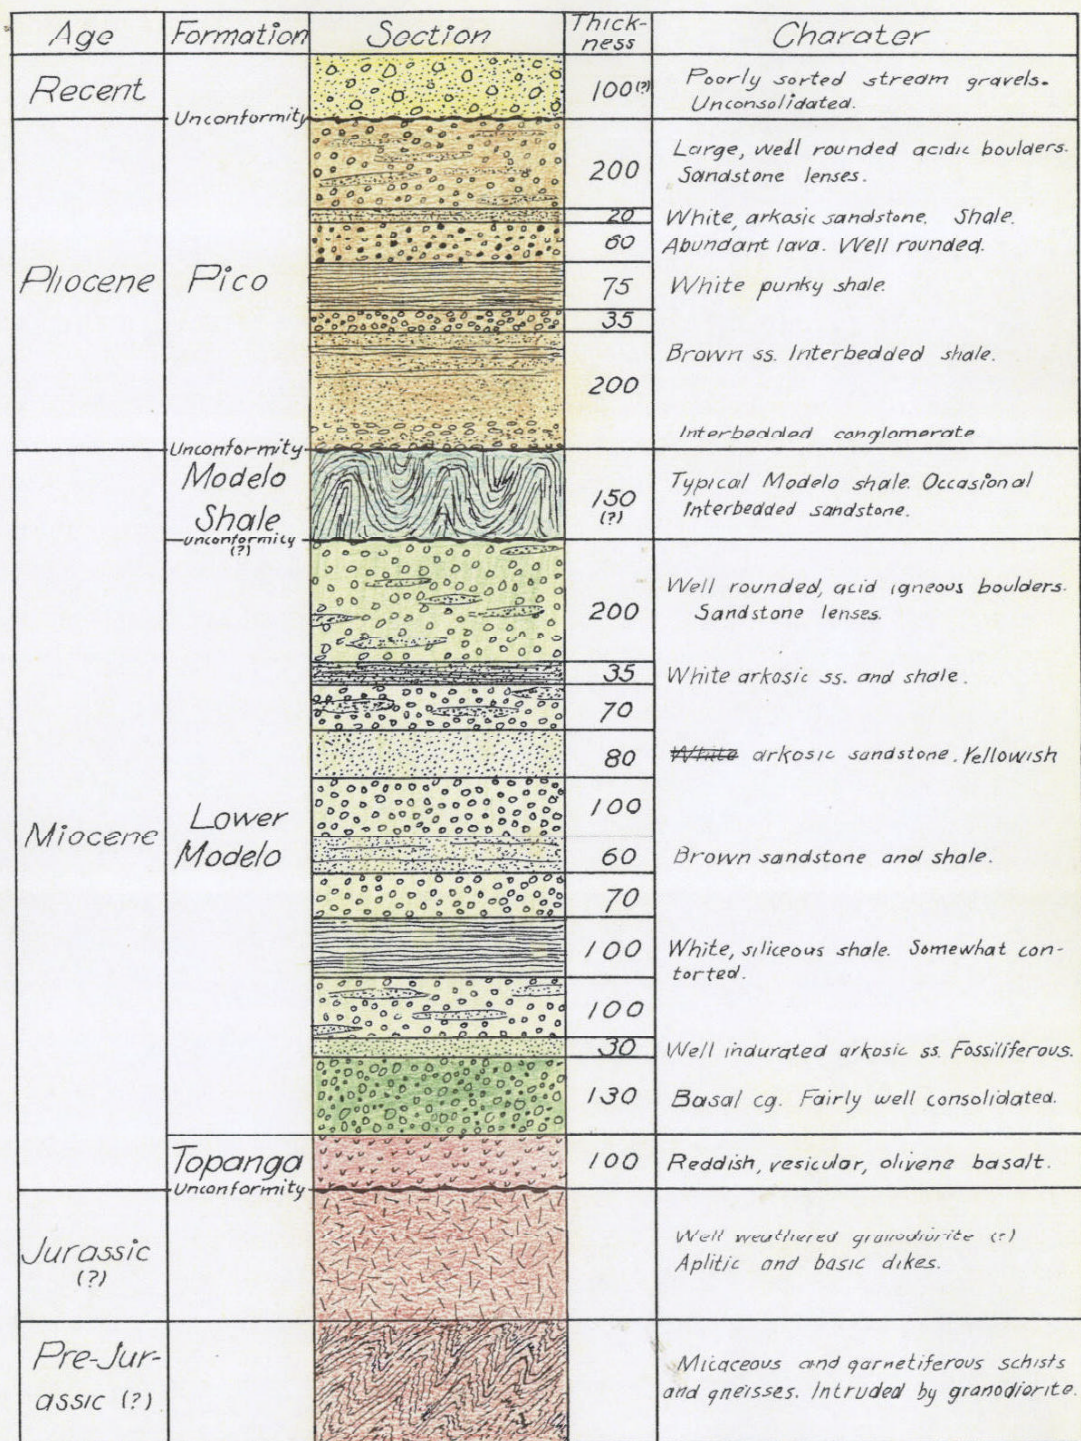 Age Formation Section Thick-
ness Charater
Recent 100(?) Poorly sorted stream gravels.
Unconsolidated.
Unconformity
Pliocene Pico
200 Large, well rounded acidic boulders.
Sandstone lenses.
20 White, arkosic sandstone. Shale.
60 Abundant lava. Well rounded.
75 White punky shale.
35
200 Brown ss. Interbedded shale.
Interbedded conglomerate
Unconformity
Miocene
Modelo
Shale
150
(?)
Typical Modelo shale. Occasional
Interbedded sandstone.
unconformity
(?)
Lower
Modelo
200 Well rounded, acid igneous boulders.
Sandstone lenses.
35 White arkosic ss. and shale.
70
80 White arkosic sandstone. Yellowish
100
60 Brown sandstone and shale.
70
100 White, siliceous shale. Somewhat con-
torted.
100
30 Well indurated arkosic ss. Fossiliferous.
130 Basal cg. Fairly well consolidated.
Topanga 100 Reddish, vesicular, olivene basalt.
Unconformity
Jurassic
(?)
Well weathered granodiorite (?)
Aplitic and basic dikes.
Pre-Jur-
assic (?)
Micaceous and garnetiferous schists
and gneisses. Intruded by granodiorite.